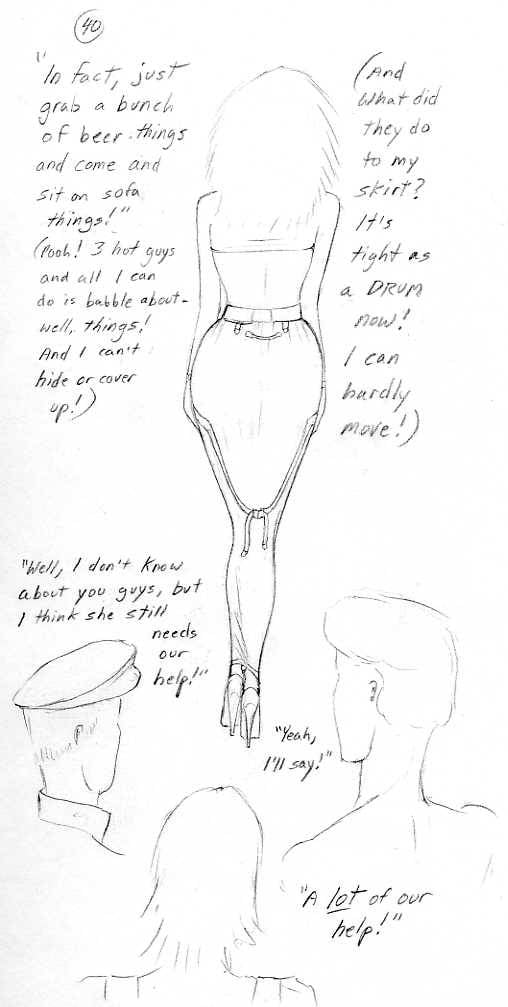 40
"In fact, just
grab a bunch
of beer-things
and come and
sit on sofa
things!"
(Pooh! 3 hot guys
and all I can
do is babble about-
well, things!
And I can't
hide or cover
up!)
(And
what did
they do
to my
skirt?
It's
tight as
a DRUM
now!
I can
hardly
move!)
"Well, I don't know
about you guys, but
I think she still
needs
our
help!"
"Yeah,
I'll say!"
"A lot of our
help!"